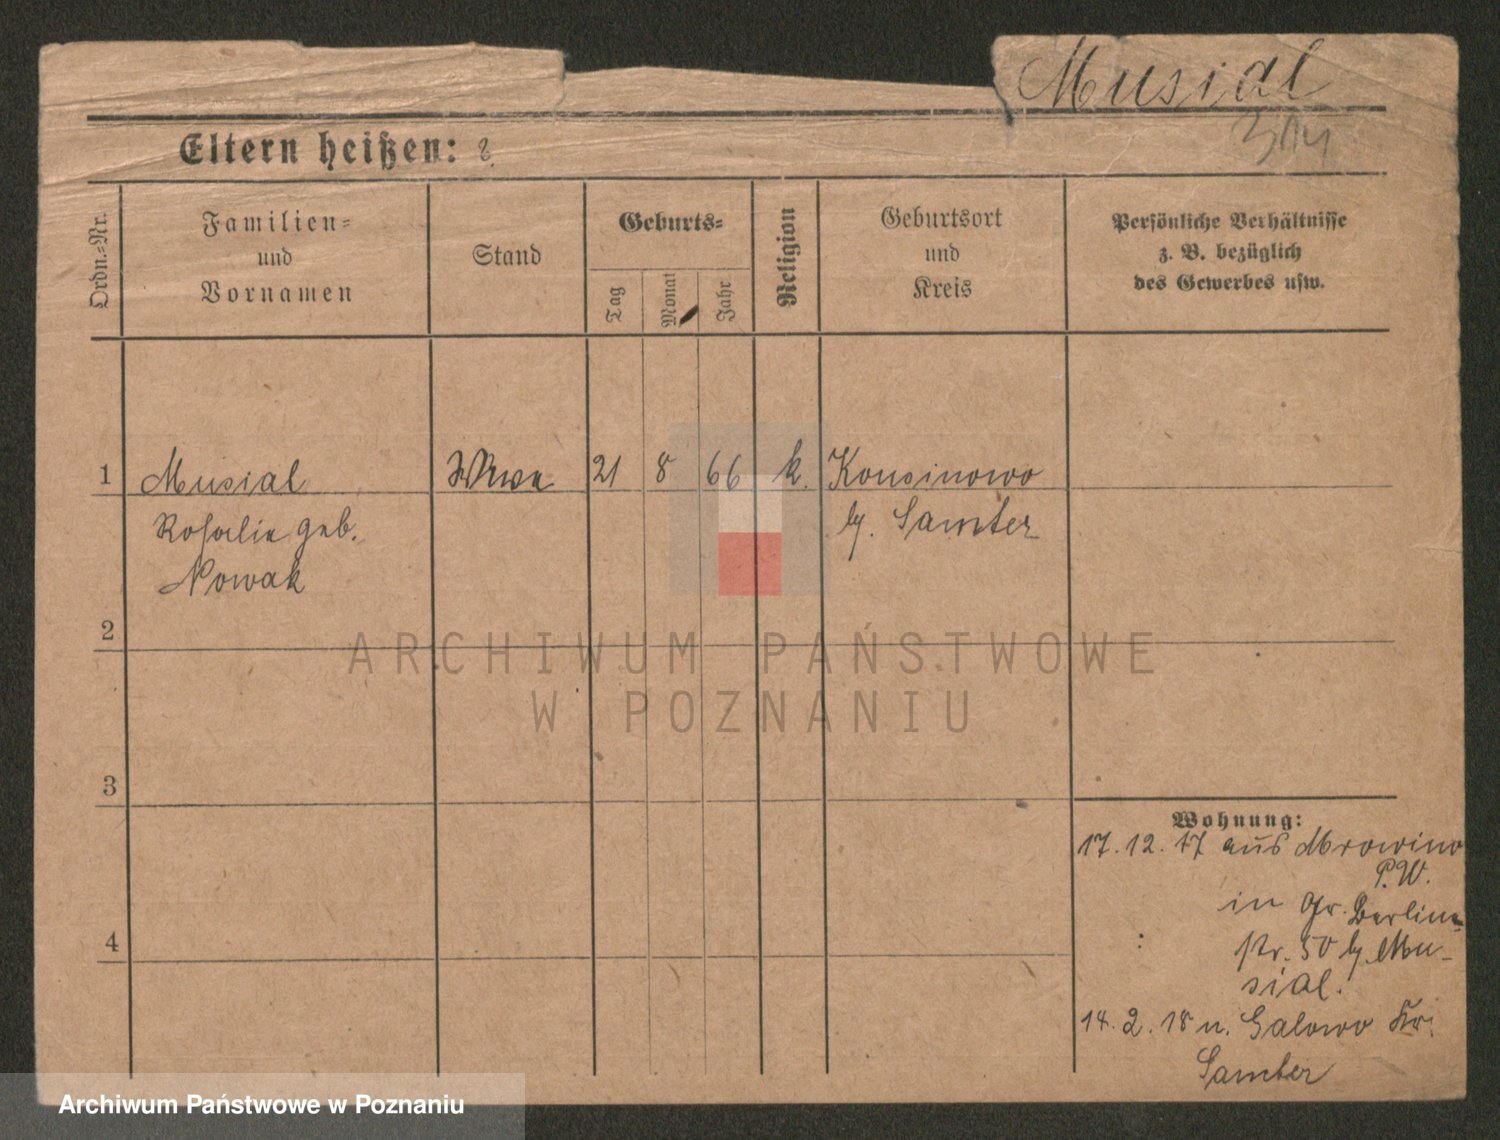 Musial
314
Eltern heißen: ?
Ordn.-Nr.
Familien-
und
Vornamen
Stand
Geburts-
Tag
Monat
Jahr
Religion
Geburtsort
und
Kreis
Persönliche Verhältnisse
z. B. bezüglich
des Gewerbes usw.
1 Musial Wwe 21 8 66 k. Konsinowo
Rosalie geb. b/. Samter
Nowak
2
ARCHIWUM PAŃSTWOWE
W POZNANIU
3
Wohnung:
17.12.17 aus Mrowino
P.W.
in Gr. Berliner
4
str. 50 b/. Mu-
sial.
14.2.18 n. Galowo Kr.
Samter
Archiwum Państwowe w Poznaniu